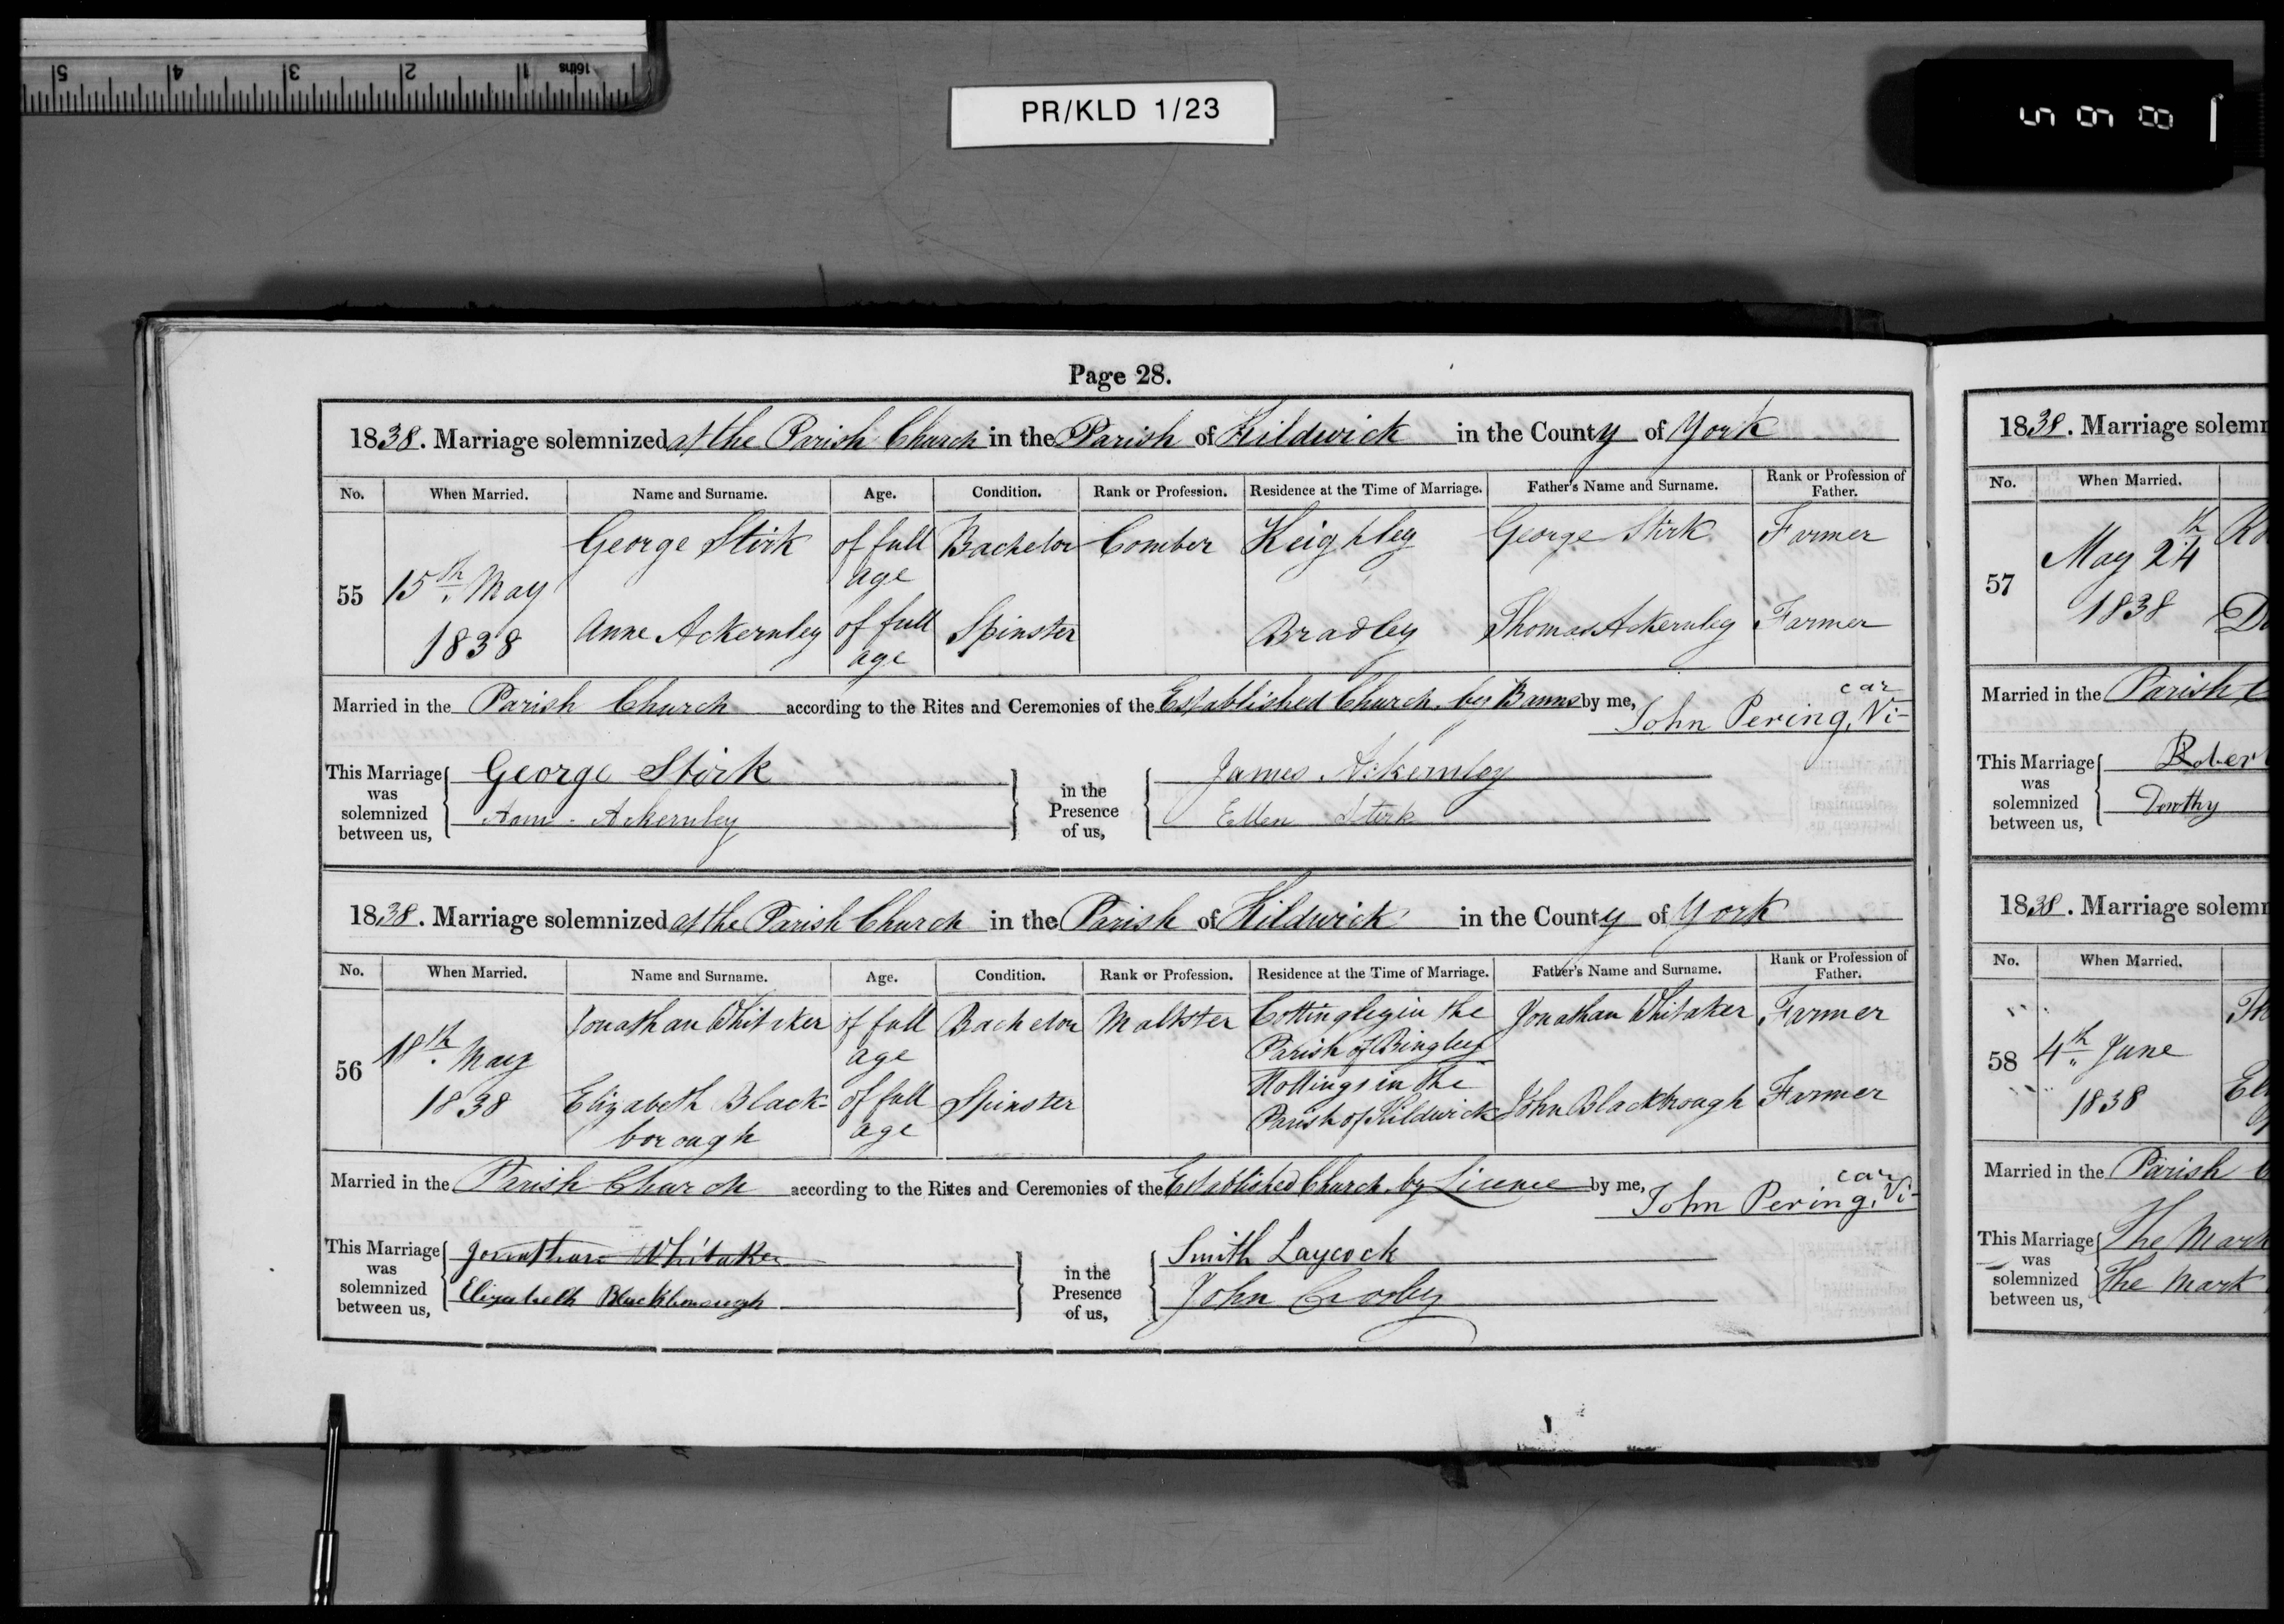 5 4 3 2 1 16ths
PR/KLD 1/23
5 9 8 1
Page 28.
1838. Marriage solemnized at the Parish Church in the Parish of Kildwick in the County of York
No. When Married. Name and Surname. Age. Condition. Rank or Profession. Residence at the Time of Marriage. Father's Name and Surname. Rank or Profession of Father.
55 15th May 1838 George Stirk of full age Bachelor Comber Keighley George Stirk Farmer
Anne Ackernley of full age Spinster Bradley Thomas Ackernley Farmer
Married in the Parish Church according to the Rites and Ceremonies of the Established Church, by Banns by me, John Pering, Vicar
This Marriage was solemnized between us, George Stirk in the Presence of us, James Ackernley
Ann Ackernley Ellen Stirk
1838. Marriage solemnized at the Parish Church in the Parish of Kildwick in the County of York
No. When Married. Name and Surname. Age. Condition. Rank or Profession. Residence at the Time of Marriage. Father's Name and Surname. Rank or Profession of Father.
56 18th May 1838 Jonathan Whitaker of full age Bachelor Maltster Cottingley in the Parish of Bingley Jonathan Whitaker Farmer
Elizabeth Black-borough of full age Spinster Hollings in the Parish of Kildwick John Blackbrough Farmer
Married in the Parish Church according to the Rites and Ceremonies of the Established Church, by Licence by me, John Pering, Vicar
This Marriage was solemnized between us, Jonathan Whitaker in the Presence of us, Smith Laycock
Elizabeth Blackborough John Crosley
1838. Marriage solemn
No. When Married.
57 May 24th 1838 Ro
Do
Married in the Parish C
This Marriage was solemnized between us, Robert
Dorothy
1838. Marriage solemn
No. When Married.
58 4th June 1838 Th
Eli
Married in the Parish C
This Marriage was solemnized between us, The Mark
The Mark